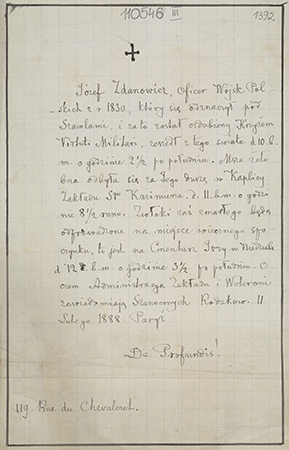 110546 III
1392.
Józef Zdanowicz, Oficer Wojsk Pol-
-skich z r. 1830, który się odznaczył pod
Szawlami, i za to został ozdobiony Krzyżem
Virtuti Militari, zszedł z tego świata d. 10 b.
m. o godzinie 2½ po południu. Msza żało
bna odbyła się za Jego Duszę, w Kaplicy
Zakładu Sgo Kazimierza, d. 11. b. m. o godzi
nie 8½ rano. Zwłoki zaś zmarłego będą
odprowadzone na miejsce wiecznego spo-
czynku, to jest na Cmentarz Ivry w Niedzielę
d. 12 b. m. o godzinie 3½ po południu. O
czem Administracya Zakładu i Weterani
zawiadomiają Szanownych Rodaków. 11
Lutego 1888. Paryż
De Profundis!
119. Rue du Chevaleret.